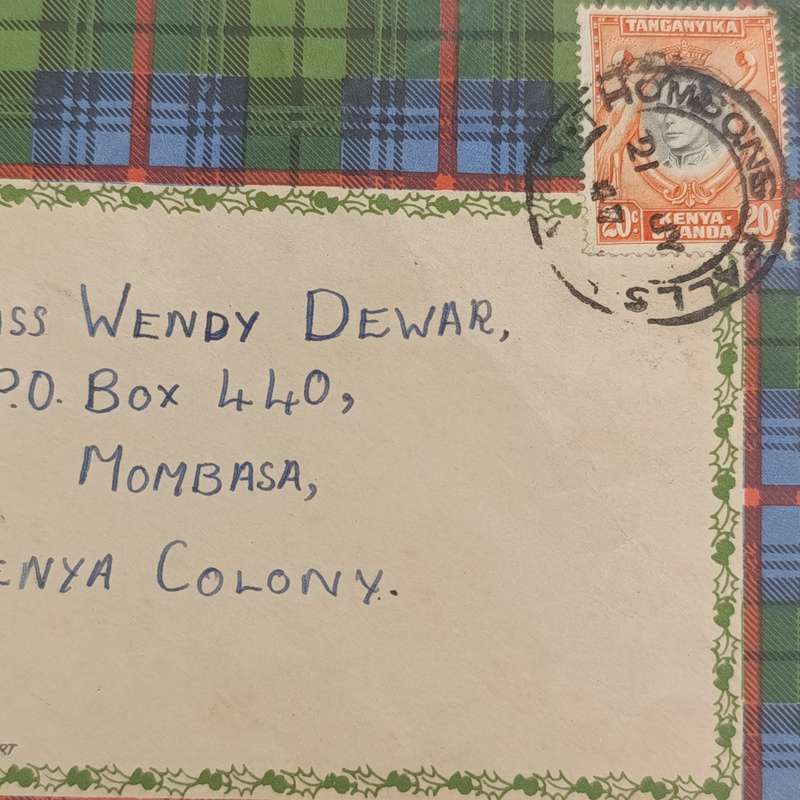 TANGANYIKA
THOMSONS FALLS
21
44
20c KENYA- 20c
UGANDA
ISS WENDY DEWAR,
P.O. BOX 440,
MOMBASA,
ENYA COLONY.
RT